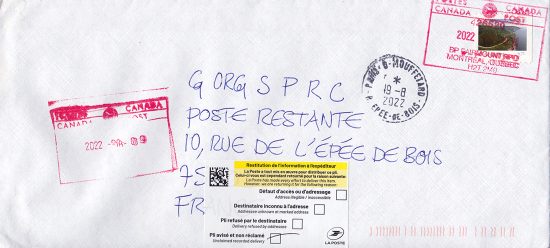 POSTES CANADA
CANADA POST
2022
BP FAIRMOUNT RPO
MONTREAL, QUEBEC
H2T 2M0
PARIS 6 MOUFFETARD
*
19-8
2022
R. EPEE-DE-BOIS
CANADA
CANADA POST
2022
G ORG S P R C
POSTE RESTANTE
10, RUE DE L'ÉPÉE DE BOIS
75
FR
Restitution de l'information à l'expéditeur
La Poste a tout mis en œuvre pour distribuer ce pli.
Celui-ci vous est cependant retourné pour la raison suivante:
La Poste has made every effort to deliver this item.
However, we are returning it for the following reason:
Défaut d'accès ou d'adressage
Address illegible / inaccessible
Destinataire inconnu à l'adresse
Addressee unknown at marked address
Pli refusé par le destinataire
Delivery refused by addressee
Pli avisé et non réclamé
Unclaimed recorded delivery
LA POSTE